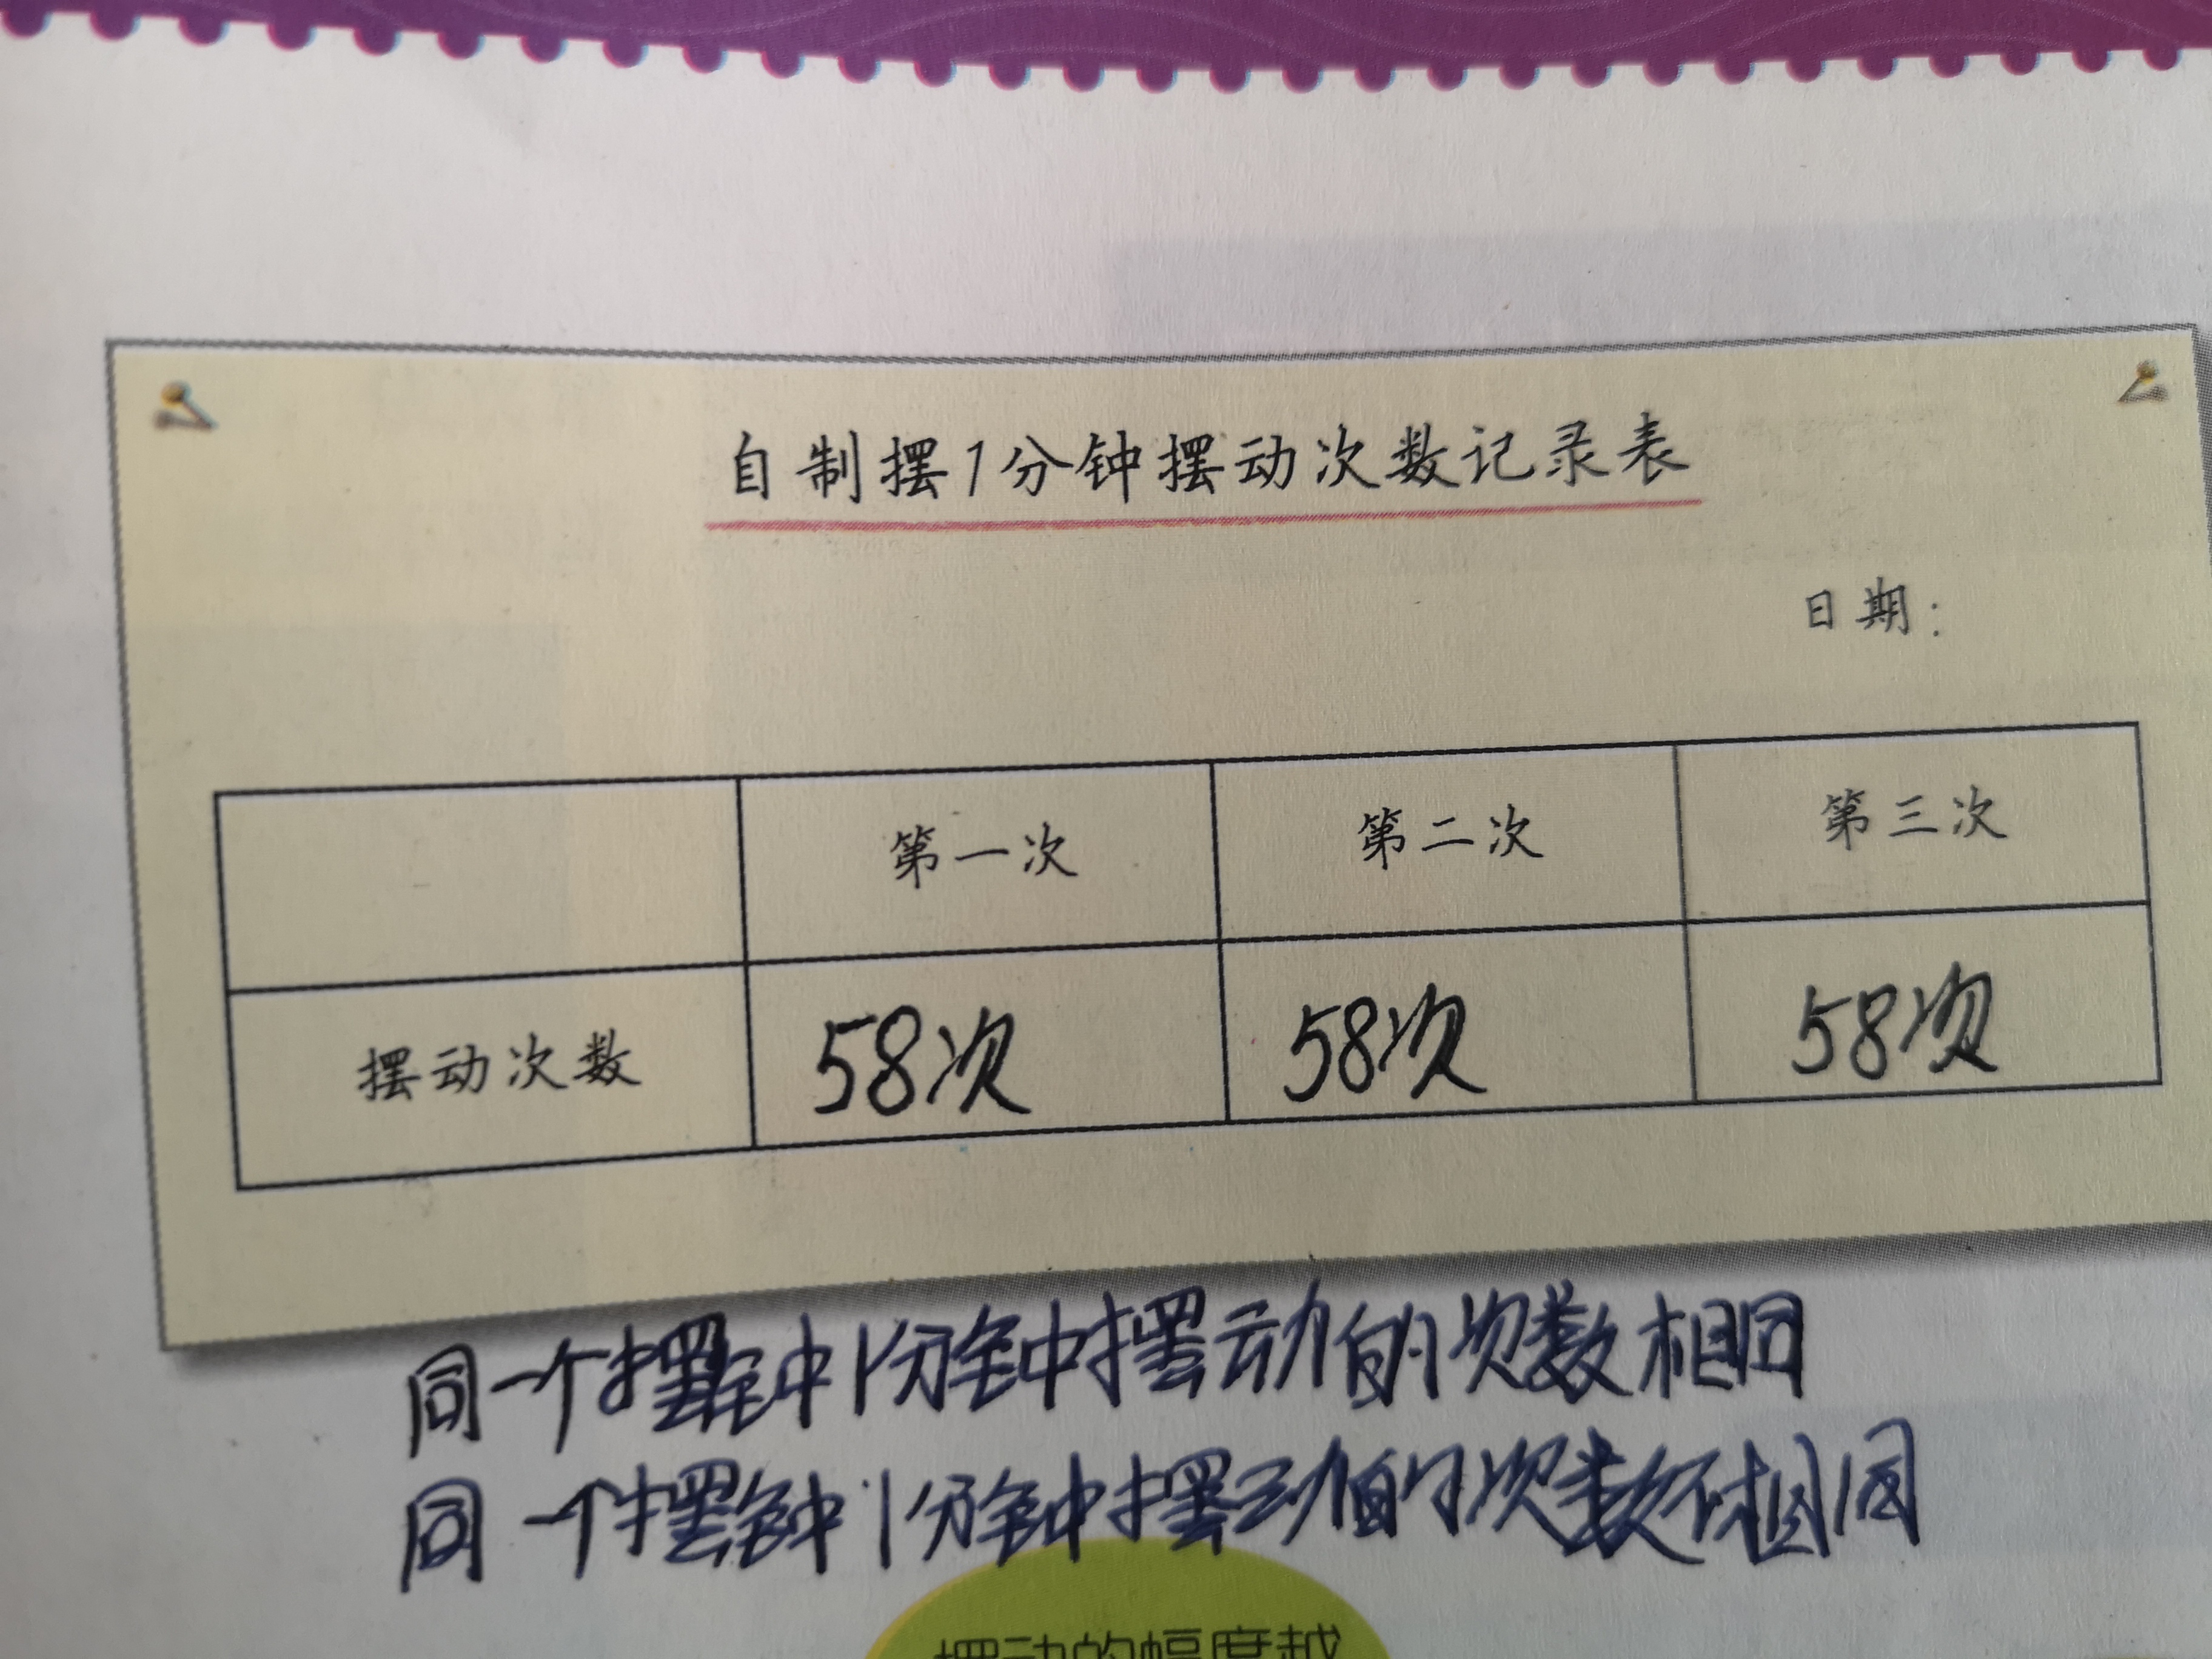 自制摆1分钟摆动次数记录表
日期：
第一次 第二次 第三次
摆动次数 58次 58次 58次
同一个摆钟1分钟摆动的次数相同
同一个摆钟1分钟摆动的次数不相同
摆动的幅度越